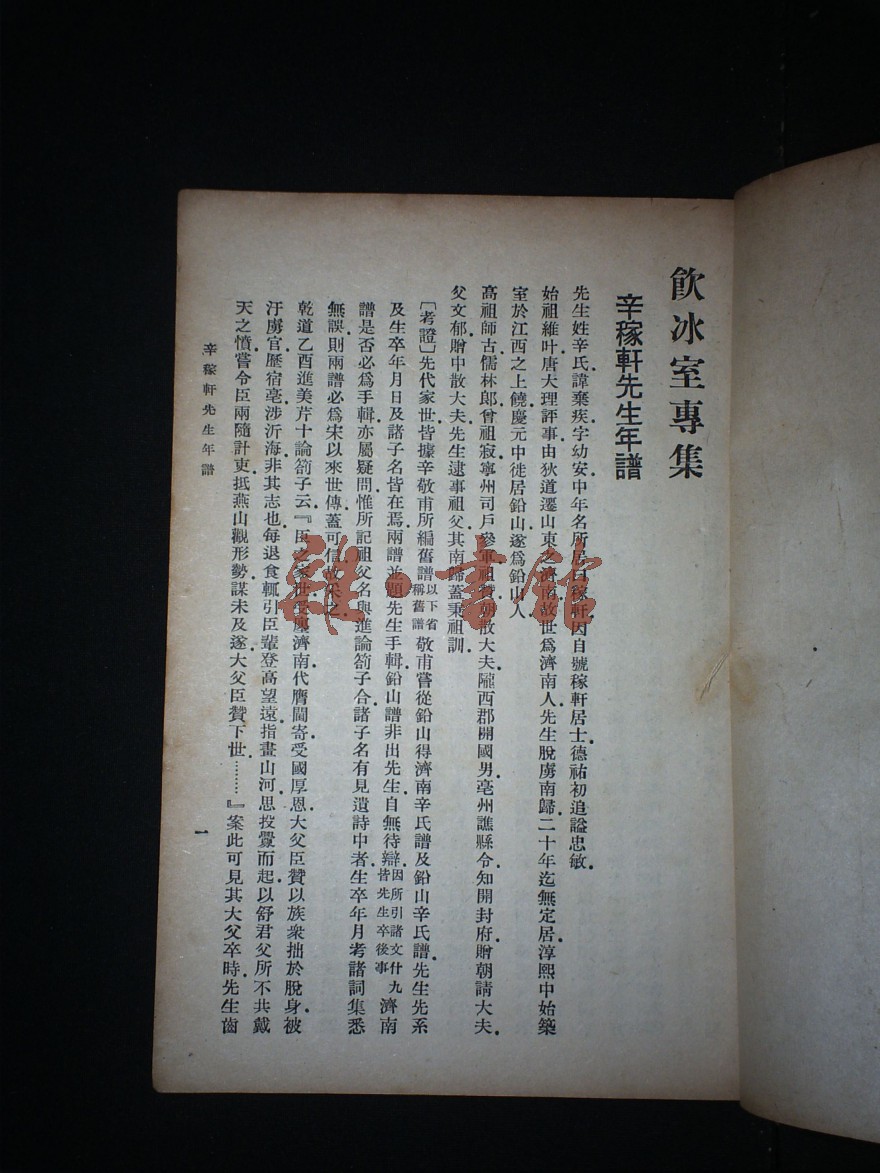 飲冰室專集
辛稼軒先生年譜
先生姓辛氏諱棄疾字幼安中年名所居曰稼軒因自號稼軒居士德祐初追謚忠敏.
始祖維叶唐大理評事由狄道遷山東之濟南故世爲濟南人先生脫虜南歸二十年迄無定居淳熙中始築
室於江西之上饒慶元中徙居鉛山遂爲鉛山人.
高祖師古儒林郎曾祖寂寧州司戶參軍祖贊朝散大夫隴西郡開國男亳州譙縣令知開封府贈朝請大夫.
父文郁贈中散大夫先生逮事祖父其南歸蓋秉祖訓.
〔考證〕先代家世皆據辛敬甫所編舊譜以下省稱舊譜敬甫嘗從鉛山得濟南辛氏譜及鉛山辛氏譜先生先系
及生卒年月日及諸子名皆在焉兩譜並題先生手輯鉛山譜非出先生自無待辯因所引諸文什九皆先生卒後事濟南
譜是否必爲手輯亦屬疑問惟所記祖父名與進論箚子合諸子名有見遺詩中者生卒年月考諸詞集悉
無誤則兩譜必爲宋以來世傳蓋可信故采之.
乾道乙酉進美芹十論箚子云『臣之家世受廛濟南代膺閫寄受國厚恩大父臣贊以族衆拙於脫身被
汙虜官歷宿亳涉沂海非其志也每退食輒引臣輩登高望遠指畫山河思投釁而起以舒君父所不共戴
天之憤嘗令臣兩隨計吏抵燕山觀形勢謀未及遂大父臣贊下世………』案此可見其大父卒時先生齒
辛稼軒先生年譜
一
雜·書館